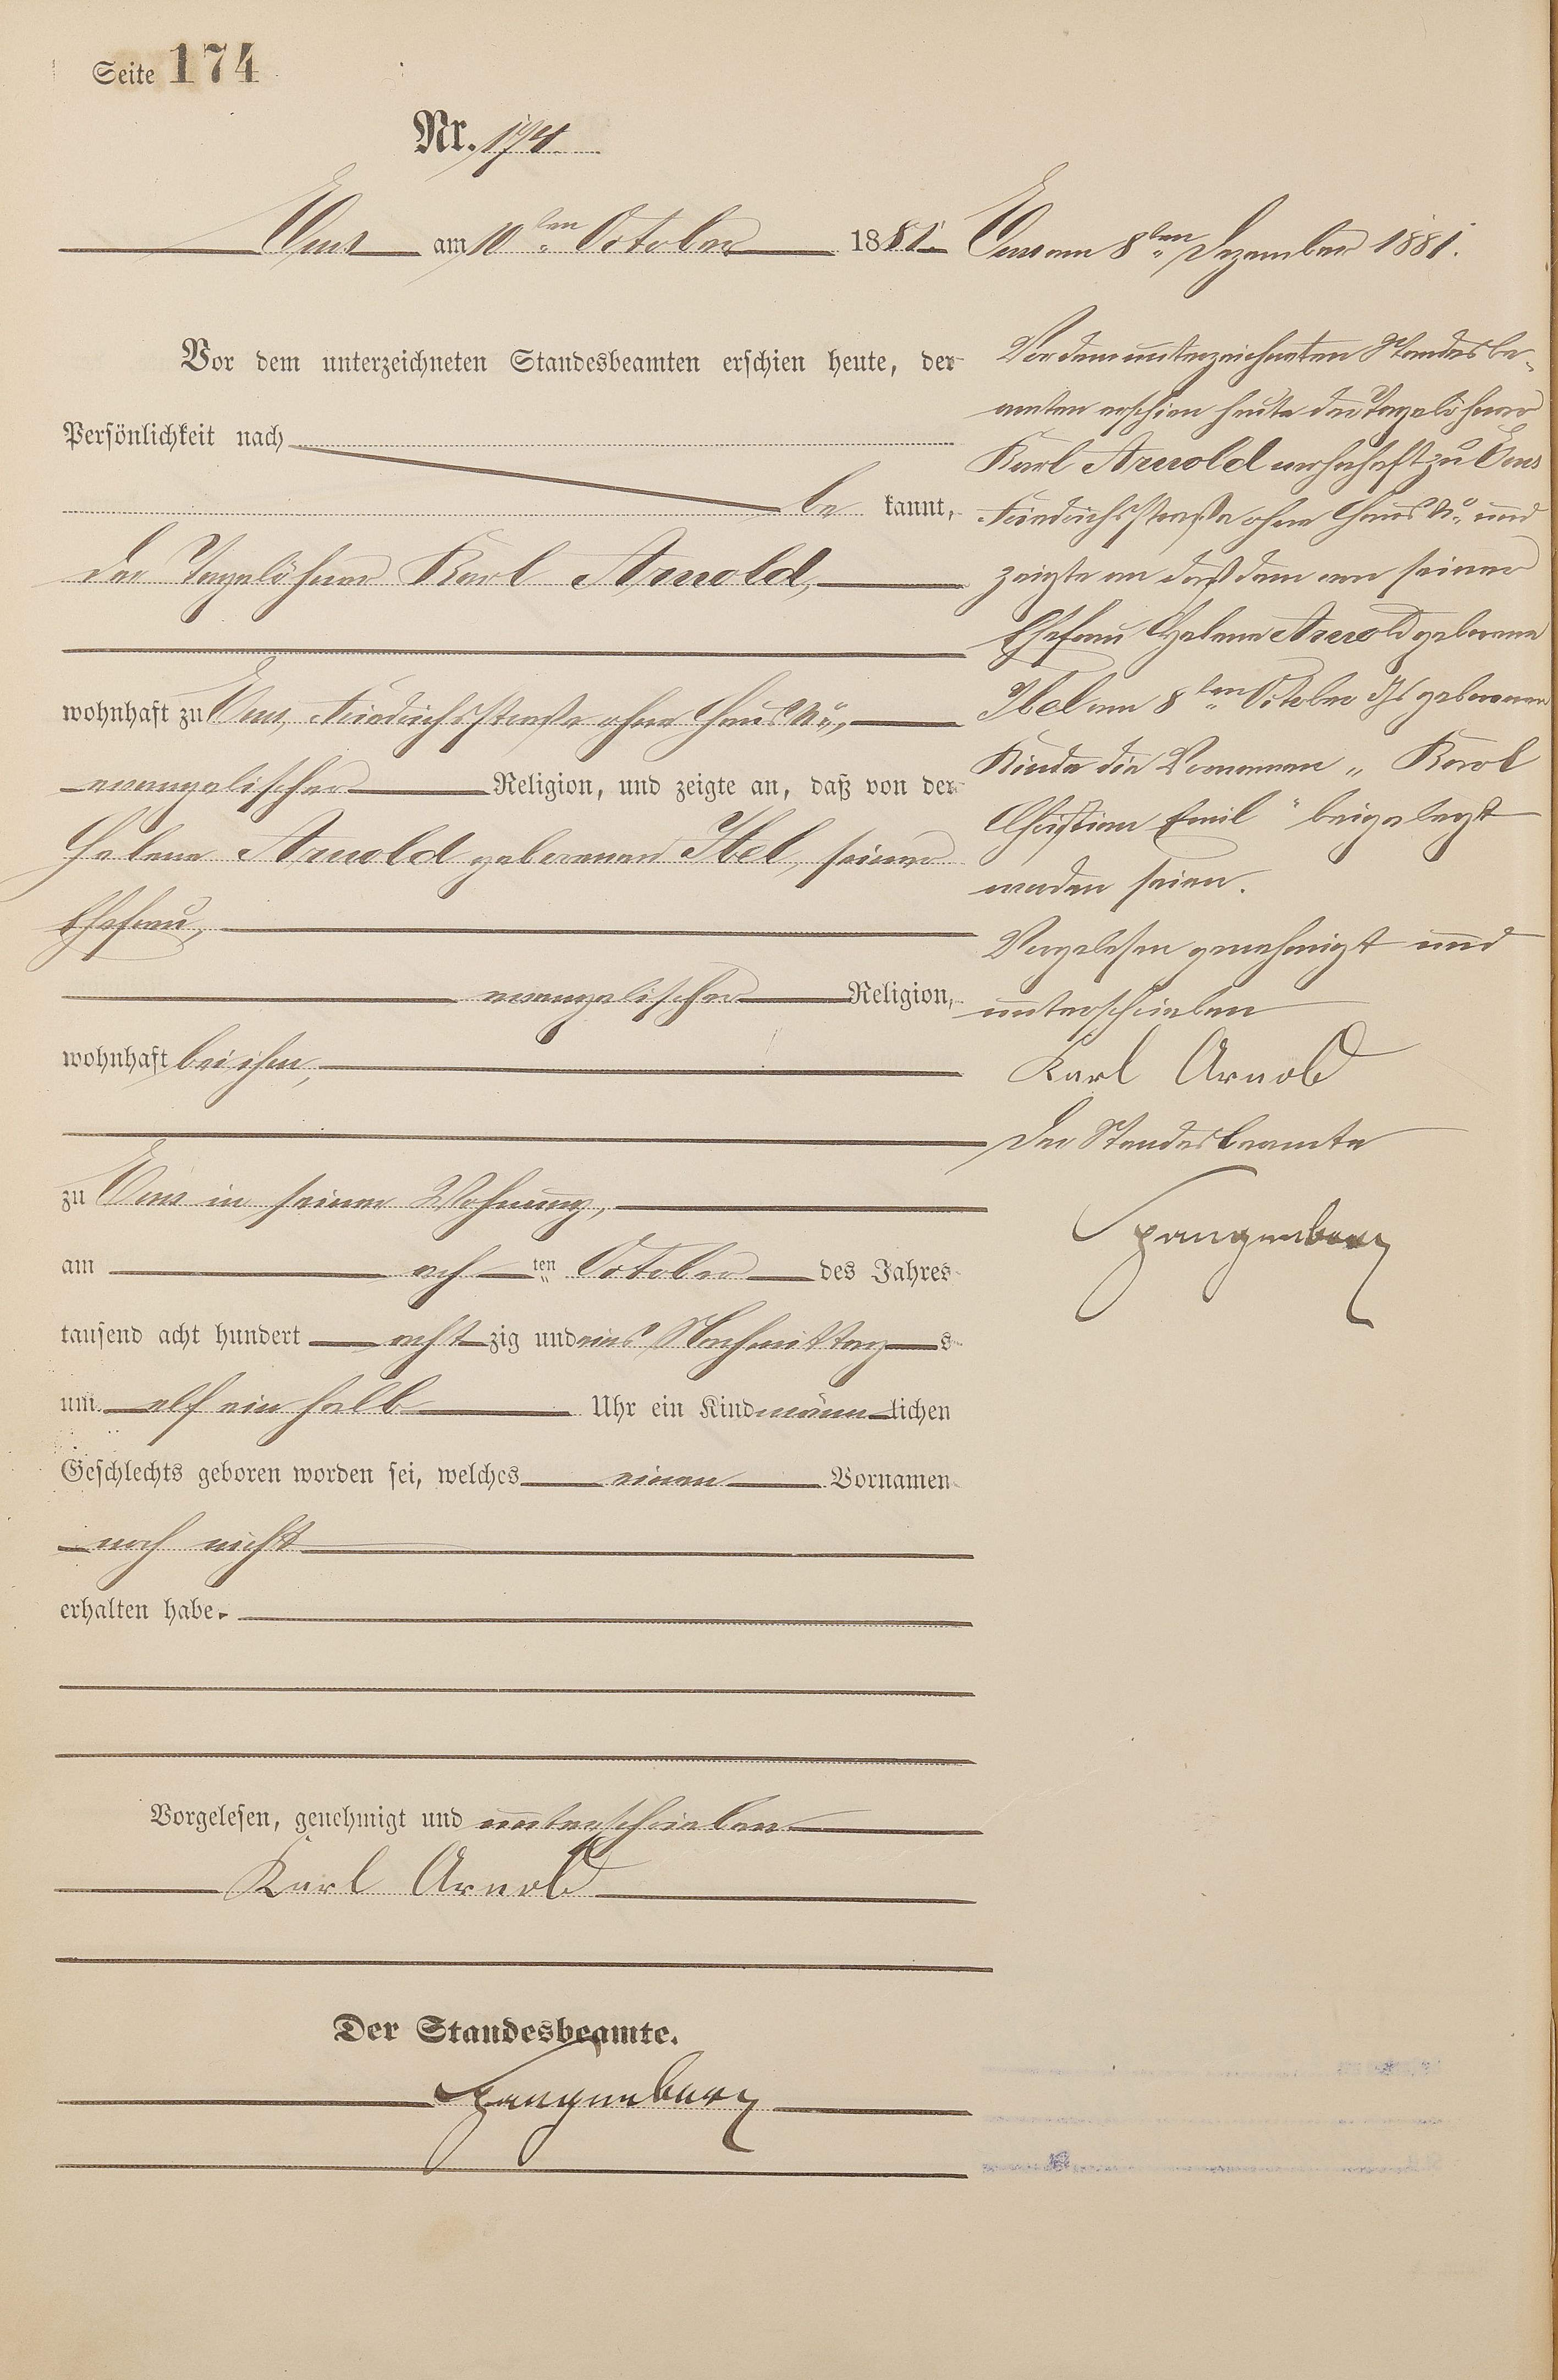 Seite 174
Nr. 174
Ems am 10ten October 1881.
Vor dem unterzeichneten Standesbeamten erschien heute, der
Persönlichkeit nach
be kannt,
der Tagelöhner Karl Arnold,
wohnhaft zu Ems, Friedrichsstraße ohne Haus No.,
evangelischer Religion, und zeigte an, daß von der
Helene Arnold geborenen Ibel, seiner
Ehefrau,
evangelischer Religion,
wohnhaft bei ihm,
zu Ems in seiner Wohnung,
am ach ten October des Jahres
tausend acht hundert acht zig und eins Nachmittag s
um elf ein halb Uhr ein Kind männ lichen
Geschlechts geboren worden sei, welches einen Vornamen
noch nicht
erhalten habe.
Vorgelesen, genehmigt und unterschrieben
Karl Arnold
Der Standesbeamte.
Spangenberg
Ems am 8ten Dezember 1881.
Vor dem unterzeichneten Standesbe-
amten erschien heute der Tagelöhner
Karl Arnold wohnhaft zu Ems
Friedrichsstraße ohne Haus No. und
zeigte an daß dem von seiner
Ehefrau Helene Arnold geborene
Ibel am 8ten October Js geborenen
Kinde die Vornamen „Karl
Christian Emil" beigelegt
worden seien.
Vorgelesen genehmigt und
unterschrieben
Karl Arnold
Der Standesbeamte
Spangenberg